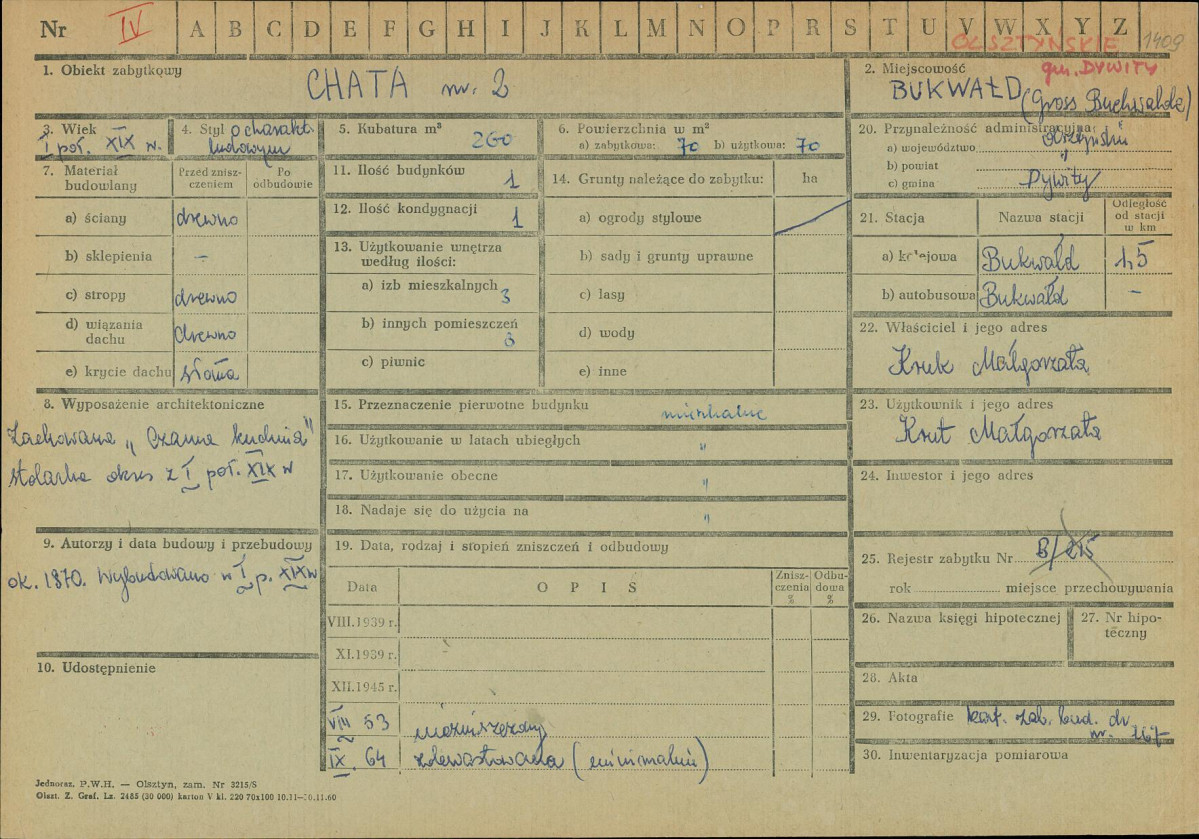 Nr IV A B C D E F G H I J K L M N O P R S T U V W X Y Z
OLSZTYŃSKIE 1409
1. Obiekt zabytkowy
CHATA nr. 2
2. Miejscowość gm. DYWITY
BUKWAŁD (Gross Buchwalde)
3. Wiek
I poł. XIX w.
4. Styl o charakt.
ludowym
5. Kubatura m³
260
6. Powierzchnia w m²
a) zabytkowa: 70 b) użytkowa: 70
7. Materiał budowlany
Przed zniszczeniem
Po odbudowie
a) ściany drewno
b) sklepienia –
c) stropy drewno
d) wiązania dachu drewno
e) krycie dachu słoma
8. Wyposażenie architektoniczne
Zachowana „Czarna kuchnia"
stolarka okres z I poł. XIX w
9. Autorzy i data budowy i przebudowy
ok. 1870. Wybudowano w I p. XIX w
10. Udostępnienie
11. Ilość budynków 1
12. Ilość kondygnacji 1
13. Użytkowanie wnętrza
według ilości:
a) izb mieszkalnych 3
b) innych pomieszczeń 6
c) piwnic
14. Grunty należące do zabytku: ha
a) ogrody stylowe
b) sady i grunty uprawne
c) lasy
d) wody
e) inne
15. Przeznaczenie pierwotne budynku mieszkalne
16. Użytkowanie w latach ubiegłych "
17. Użytkowanie obecne "
18. Nadaje się do użycia na "
19. Data, rodzaj i stopień zniszczeń i odbudowy
Data OPIS Zniszczenia % Odbudowa %
VIII.1939 r.
XI.1939 r.
XII.1945 r.
VIII 53 niezniszczony
IX. 64 zdewastowana (minimalnie)
20. Przynależność administracyjna
a) województwo Olsztyński
b) powiat "
c) gmina Dywity
21. Stacja Nazwa stacji Odległość od stacji w km
a) kolejowa Bukwałd 1,5
b) autobusowa Bukwałd –
22. Właściciel i jego adres
Kruk Małgorzata
23. Użytkownik i jego adres
Kruk Małgorzata
24. Inwestor i jego adres
25. Rejestr zabytku Nr B/215
rok miejsce przechowywania
26. Nazwa księgi hipotecznej
27. Nr hipoteczny
28. Akta
29. Fotografie kart. zab. bud. dr.
nr. 167
30. Inwentaryzacja pomiarowa
Jednoraz. P.W.H. — Olsztyn, zam. Nr 3215/S
Olszt. Z. Graf. Lz. 2485 (30 000) karton V kl. 220 70x100 10.11—30.11.60